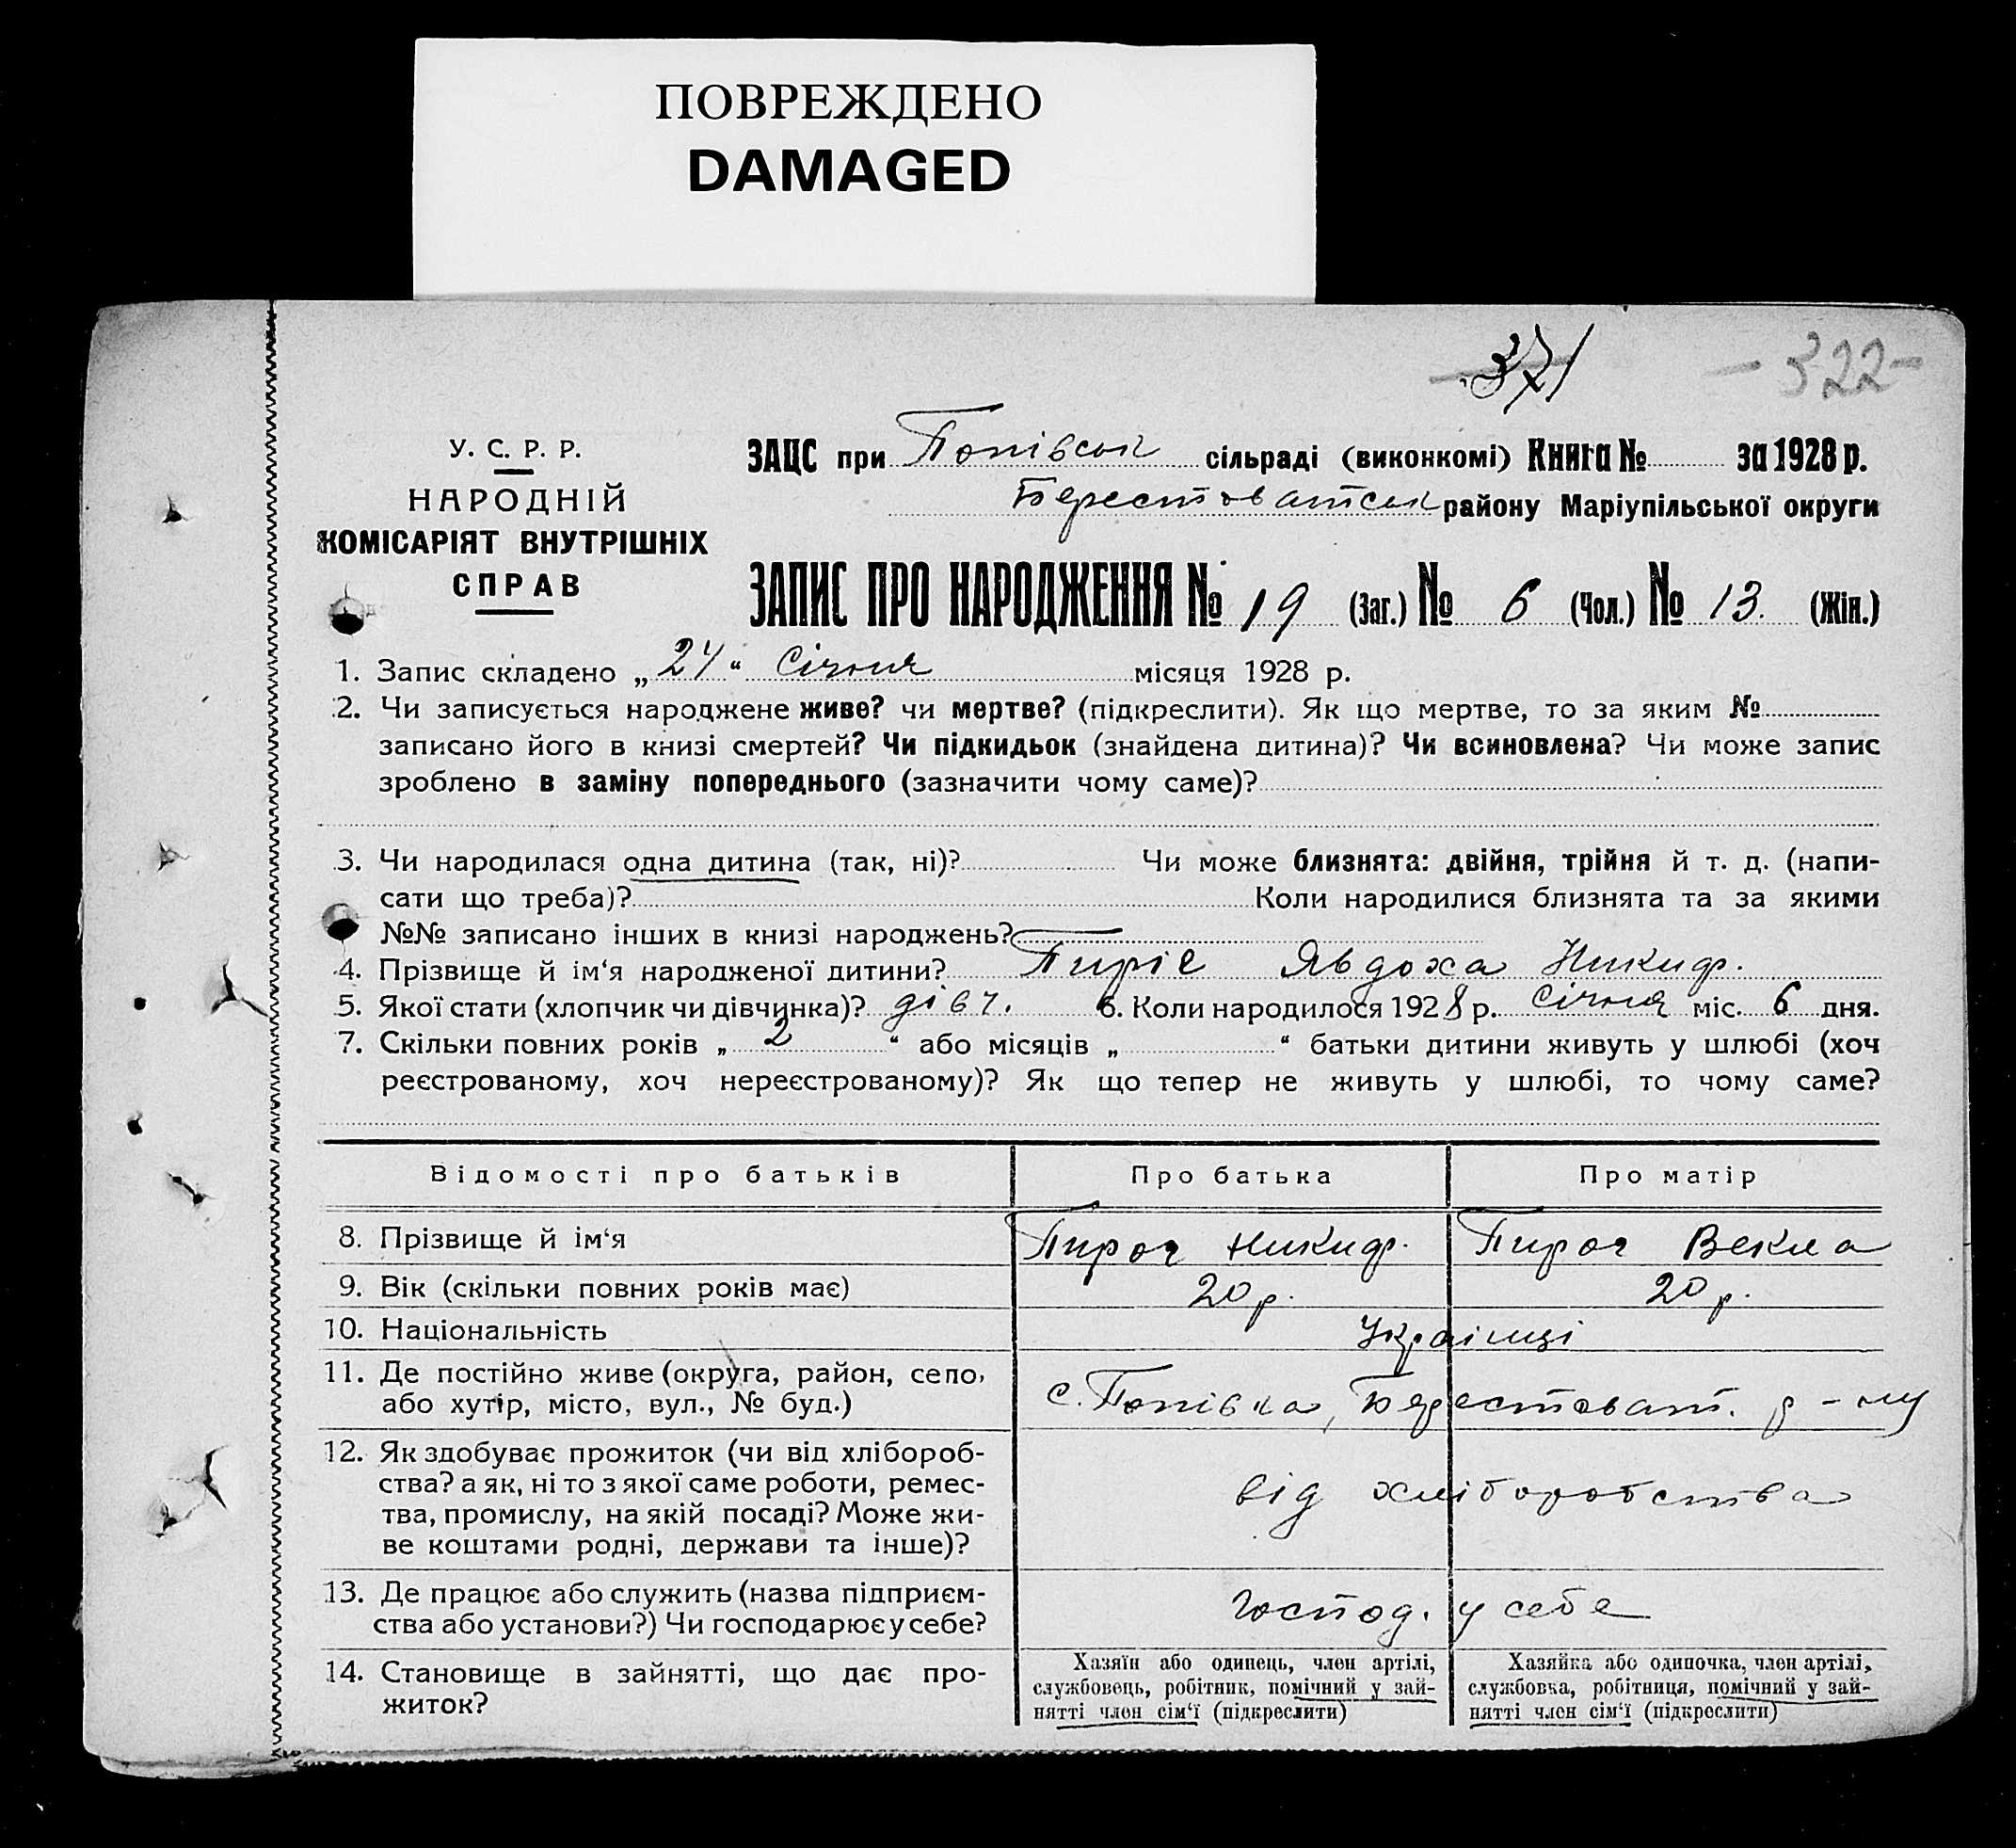 ПОВРЕЖДЕНО
DAMAGED
371
- 322 -
У. С. Р. Р.
НАРОДНІЙ
КОМІСАРІЯТ ВНУТРІШНІХ
СПРАВ
ЗАЦС при Попівськ сільраді (виконкомі) Книга № за 1928 р.
Берестоватськ району Маріупільської округи
ЗАПИС ПРО НАРОДЖЕННЯ № 19 (Заг.) № 6 (Чол.) № 13. (Жін.)
1. Запис складено „24“ Січня місяця 1928 р.
2. Чи записується народжене живе? чи мертве? (підкреслити). Як що мертве, то за яким №
записано його в книзі смертей? Чи підкидьок (знайдена дитина)? Чи всиновлена? Чи може запис
зроблено в заміну попереднього (зазначити чому саме)?
3. Чи народилася одна дитина (так, ні)? Чи може близнята: двійня, трійня й т. д. (напи-
сати що треба)? Коли народилися близнята та за якими
№№ записано інших в книзі народжень?
4. Прізвище й ім‘я народженої дитини? Явдоха Никиф.
5. Якої стати (хлопчик чи дівчинка)? дівч. 6. Коли народилося 1928 р. Січня міс. 6 дня.
7. Скільки повних років „ 2 “ або місяців „ “ батьки дитини живуть у шлюбі (хоч
реєстрованому, хоч нереєстрованому)? Як що тепер не живуть у шлюбі, то чому саме?
Відомості про батьків Про батька Про матір
8. Прізвище й ім‘я Никиф. Векла
9. Вік (скільки повних років має) 20 р. 20 р.
10. Національність Українці
11. Де постійно живе (округа, район, село,
або хутір, місто, вул., № буд.) с. Попівка, Берестоват. р-ну
12. Як здобуває прожиток (чи від хлібороб-
ства? а як, ні то з якої саме роботи, ремес-
тва, промислу, на якій посаді? Може жи-
ве коштами родні, держави та інше)? від хліборобства
13. Де працює або служить (назва підприєм-
ства або установи?) Чи господарює у себе? господ. у себе
14. Становище в зайнятті, що дає про-
житок?
Хазяїн або одинець, член артілі,
службовець, робітник, помічний у зай-
нятті член сім‘ї (підкреслити)
Хазяйка або одиночка, член артілі,
службовка, робітниця, помічний у зай-
нятті член сім‘ї (підкреслити)